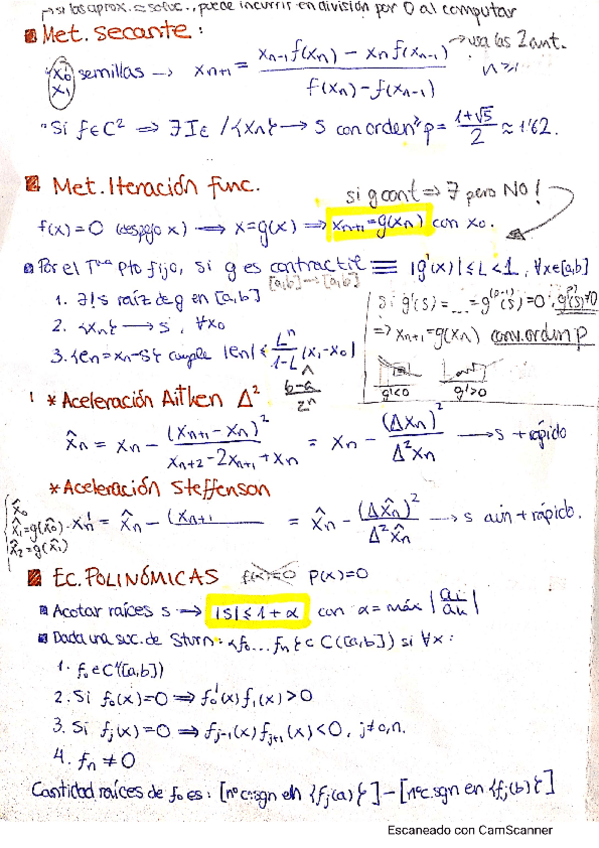 → si las aprox. ≈ soluc., puede incurrir en división por 0 al computar
Met. Secante:
x₀ x₁ semillas → xₙ₊₁ = (xₙ₋₁f(xₙ) − xₙf(xₙ₋₁)) / (f(xₙ) − f(xₙ₋₁)) → usa las 2 ant. n≥1
Si f∈C² ⟹ ∃Iε / {xₙ} → s con orden p = (1+√5)/2 ≈ 1'62.
Met. Iteración func.
si g cont ⟹ ∃ pero NO!
f(x)=0 (despejo x) → x=g(x) ⟹ xₙ₊₁=g(xₙ) con x₀.
Por el Tma pto fijo, si g es contractil ≡ |g'(x)| ≤ L < 1, ∀x∈[a,b]
[a,b]→[a,b]
1. ∃!s raíz de g en [a,b]
2. {xₙ} → s, ∀x₀
3. {eₙ=xₙ−s} cumple |eₙ| ≤ Lⁿ/(1−L) (x₁−x₀)
(b−a)/2ⁿ
Si g'(s)=...=g⁽ᵖ⁻¹⁾(s)=0, g⁽ᵖ⁾(s)≠0
⟹ xₙ₊₁=g(xₙ) conv. orden p
g'<0 g'>0
! * Aceleración Aitken Δ²
x̂ₙ = xₙ − (xₙ₊₁−xₙ)²/(xₙ₊₂−2xₙ₊₁+xₙ) = xₙ − (Δxₙ)²/Δ²xₙ → s + rápido
* Aceleración Steffenson
x̂₀
x̂₁=g(x̂₀)
x̂₂=g(x̂₁)
xₙ¹ = x̂ₙ − (xₙ₊₁ = x̂ₙ − (Δx̂ₙ)²/Δ²x̂ₙ → s aún + rápido.
Ec. POLINÓMICAS f(x)=0 P(x)=0
Acotar raíces s → |s| ≤ 1+α con α = máx |aᵢ/aₙ|
Dada una suc. de Sturn: {f₀...fₙ}∈C([a,b]) si ∀x:
1. f₀∈C¹([a,b])
2. Si f₀(x)=0 ⟹ f₀'(x)f₁(x)>0
3. Si fⱼ(x)=0 ⟹ fⱼ₋₁(x)fⱼ₊₁(x)<0, j≠0,n.
4. fₙ ≠ 0
Cantidad raíces de f₀ es: [nºc.sgn en {fⱼ(a)}] − [nºc.sgn en {fⱼ(b)}]
Escaneado con CamScanner